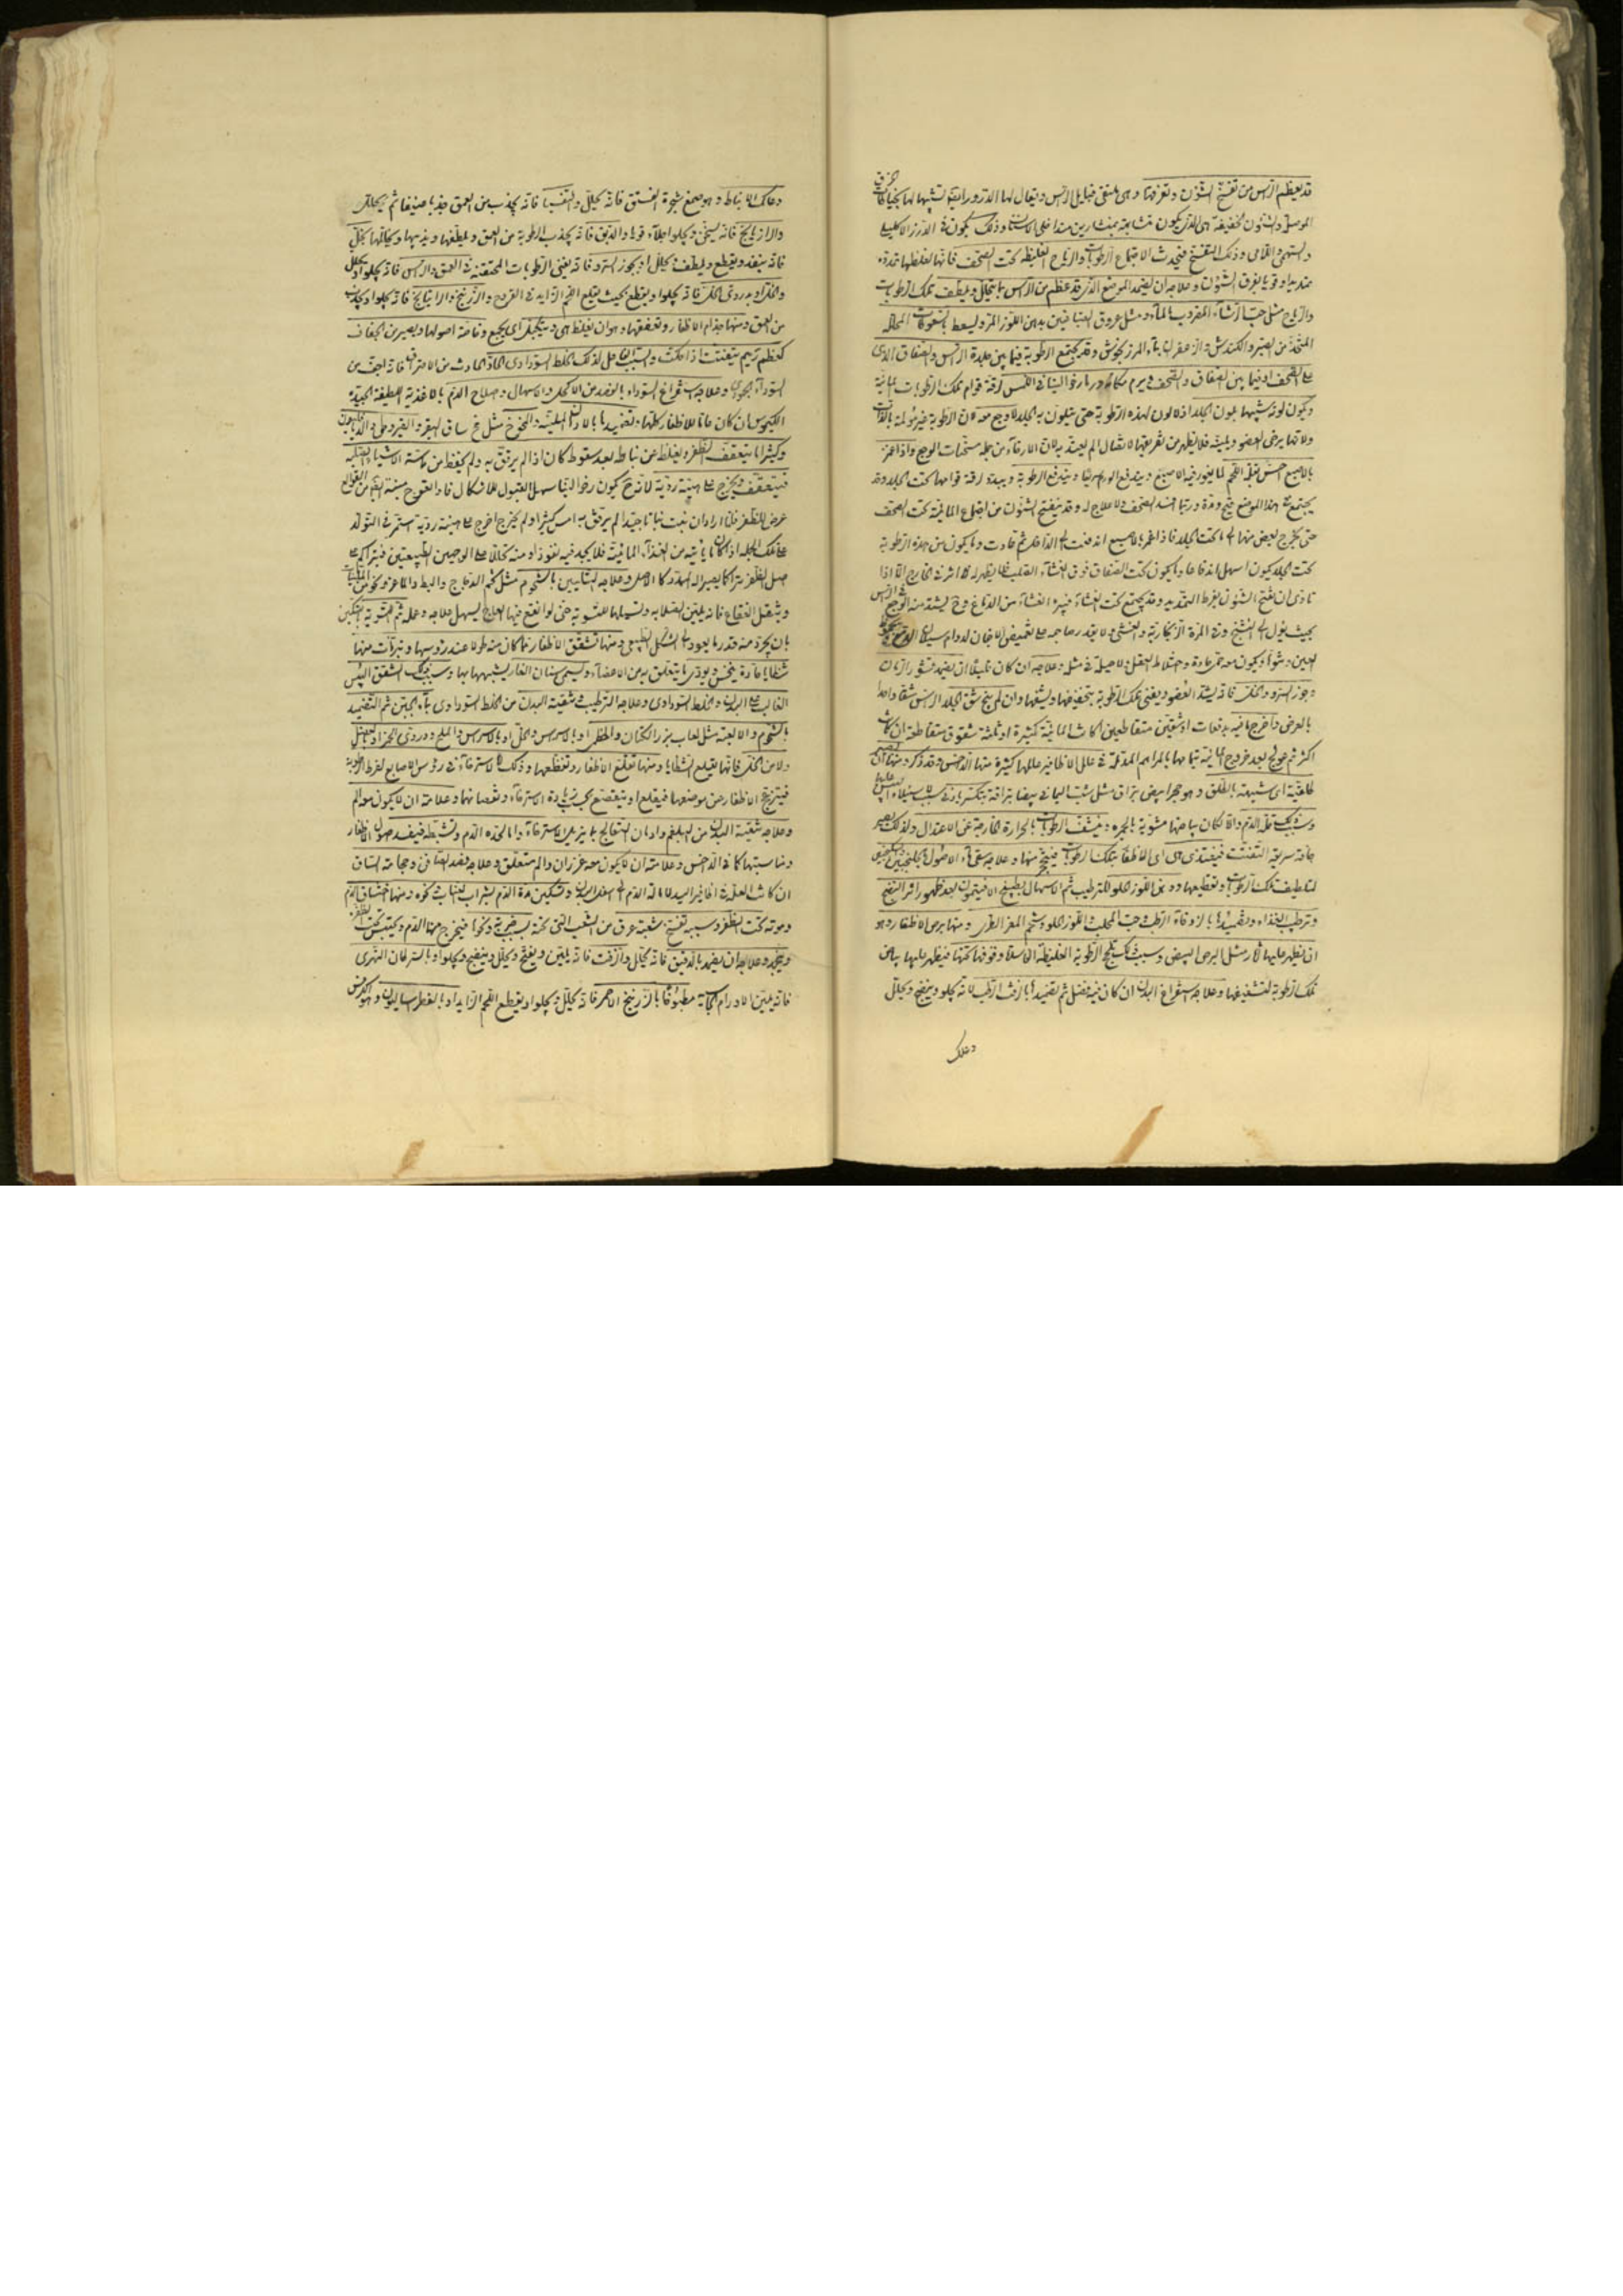 قد يعظم الرأس من تفسخ الشؤن وتفرقها وهى ملتقى قبايل الرأس ويقال لها الدروز ايضا تشبيها لها بخياطة
الموصل والشئون الخفيفة هى التى يكون متشابهة بمنشارين متداخلى الاسنان وذلك يكون فى الدرز الاكليلى
والسهمى واللامى وذلك التفسخ يحدث لاجتماع الرطوبات والرياح الغليظة تحت القحف فانها لغلظها تمدده
تمديدا قويا يفرق الشؤن وعلاجه ان يضمد الموضع الذى قد عظم من الرأس بما يحلل ويلطف تلك الرطوبات
والرياح مثل حب الرشاد المضروب بالماء ومثل عروق الصباغين بدهن اللوز المر ويسعط بالسعوطات المحللة
المتخذة من الصبر والكندش والزعفران بماء المرزنجوش وقد يجتمع الرطوبة فيما بين جلدة الرأس والصفاق الذى
على القحف او فيما بين الصفاق والقحف ويرم مكانه ورما رخوا لينا فى اللمس لرقة قوام تلك الرطوبات المائية
ويكون لونه شبيها بلون الجلد اذ لا لون لهذه الرطوبة حتى يتلون به الجلد ولا وجع معه لان الرطوبة غير مؤلمة بالذات
ولانها يرخى العضو ويلينه فلا يظهر من تفريقها الاتصال الم يعتد به لان الارخاء من جملة مسكنات الوجع واذا غمز
بالاصبع احس بقلة اللحم لما يغور فيه الاصبع ويندفع الورم سريعا ويندفع الرطوبة وبيده رقة قوامها تحت الجلد وقد
يجتمع فى هذا الموضع قيح ومدة وربما افسد القحف ولا علاج له وقد ينفتح الشئون من اجتماع المائية تحت القحف
حتى يخرج بعض منها الى ما تحت الجلد فاذا غمز بالاصبع اندفعت الى الداخل ثم عادت وما يكون من هذه الرطوبة
تحت الجلد يكون اسهل اندفاعا وما يكون تحت الصفاق فوق الغشاء الصلب فلا يظهر له اثر فى الخارج الا اذا
تاذى ان تفتح الشئون بفرط التمديد وقد يجتمع تحت الغشاء فيبرد الغشاء من الدماغ وح يشتد منه الوجع
بحيث يؤل الى التشنج وقئ المرة الزنجارية والغشى ولا يقدر صاحبه على تغميض الاجفان لدوام سيلان الدموع
العين ونتوا ويكون معه حمى حادة واختلاط العقل ولا حيلة فى مثله وعلاجه ان كان قليلا ان يضمد بقشور الرمان
وجوز السرو والخل فانه يشد العضو ويفنى تلك الرطوبة بتجفيفها وتنشفها وان لم ينجع شق الجلد الرأس شقا واحدا
بالعرض واخرج ما فيه بدفعات او شقين متقاطعين ان كانت المائية كثيرة او ثلثة شقوق متقاطعة ان كانت
اكثر ثم عولج بعد خروج المائية بتمامها بالمراهم المدملة فى علل الاظافير عللها كثيرة منها الداحس وقد ذكر ومنها ان تصير
طلقية اى شبيهة بالطلق وهو حجر ابيض براق مثل شب اليمانى بيضا براقة ينكسر بادنى سبب لاستيلاء اليبس عليها
وسببه قلة الدم والا لكان بياضها مشوبة بالحمرة ونشف الرطوبات بالحرارة الخارجة عن الاعتدال ولذلك تصير
جافة سريعة التفتت فيغتذى بها اى الاظفار بتلك الرطوبات فيبيض منها وعلاجه سقى ماء الاصول بالجلنجبين
لتلطيف تلك الرطوبات وتقطيعها ودهن اللوز الحلو للترطيب ثم الاسهال بطبيخ الافتيمون بعد ظهور اثر النضج
وترطيب الغذاء وتضميدها بالزوفاء الرطب وحب المحلب واللوز الحلو وشحم المعز الطرى ومنها برص الاظفار وهو
ان يظهر عليها آثار مثل البرص البيض وسبب ذلك تلحج الرطوبة الغليظة الاسلة وقوفها تحتها فيظهر عليها بياض
تلك الرطوبة لتشفيفها وعلاجه استفراغ البدن ان كان فيه فضل ثم تضميدها بالزفت الرطب لانه يجلو وينضج ويحلل
وعلك
وعلك الانباط وهو صمغ شجرة الفستق فانه يحلل والتفسيا فانه يجذب من العمق جذبا عنيفا ثم يحلل
والرازيانج فانه يسخن ويجلو اجلاء قويا والدبق فانه يجذب الرطوبة من العمق ويلطفها ويذيبها ويحللها بكل
فانه ينفذ ويقطع ويلطف ويحلل او بجوز السرو فانه يفنى الرطوبات المحتقنة فى العمق والترمس فانه يجلو او بخل
والخل او بدردى الخل فانه يجلو او يقطع بحيث يقلع اللحم الزايد فى القروح والزرنيخ والراتيانج فانه يجلو او يجذب
من العمق ومنها جذام الاظفار وتعففها وهو ان يغلظ هى ويتكتل اى يجتمع وخاصة اصولها ويصير من الجفاف
كعظم رميم يتفتت اذا حكت والسبب الفاعل لذلك الخلط السوداوى الحاد الحادث من الاحتراق فانه اجف من
السوداء الجمودى وعلاجه استفراغ السوداء بالفصد من الاكحل والاسهال واصلاح الدم بالاغذية اللطيفة الجيدة
الكيموس ان كان عاما للاظفار كلها وتضميدها بالادهان الملينة والمخوخ مثل مخ ساق البقر والقيروطى والداخليون
وكثيرا ما يتعقف الظفر ويغلظ عن نباط بعد سقوط كان اذا لم يرفق به ولم يحفظ من ماسة الاشياء الصلبة
فيتعقف ويخرج على هيئة رديئة لانه ح يكون رخو النبات سهل القبول للاشكال فاذا اعوج
عرض للظفر فاذا اراد ان نبت نباتا جيدا لم يرفق به امس كثيرا ولم يخرج اخرج على هيئة ردية استمر فى التولد
على تلك الجبلة اذ كان ما يأتيه من الغذاء المائية فلا يجد فيه نفوذا ومنه تحللا على الوجهين الطبيعيين فيتراكم على
اصل الظفر متراكما يصير اليه المدد كالاصل وعلاجه التليين بالشحوم مثل شحم الدجاج والبط والماعز ونحو من الملينات
وشعل الفقاع فانه يلين الصلابة ويسهلها للتسوية حتى لو انقع فيها العاج ليسهل علاجه وعمله ثم التسوية بالسكين
بان يجرد منه قدر ما يعود الى الشكل الطبيعى ومنها تشقق الاظفار فما كان منه طولا عند رؤسها وتبرأت منها
شظايا حادة ينخس ويؤذى ما يتعلق به من الاعضاء ويسمى اسنان الفار يشبهها بها وسبب ذلك التشقق اليبس
الغالب على البدن والخلط السوداوى وعلاجه الترطيب وتنقية البدن من الخلط السوداوى بماء الجبن ثم التضميد
بالشحوم والالعبة مثل لعاب بزر الكتان والخطمى او بالاسراس والخل او بالاسراس والملح ودردى الخمر او بالعنصل
ودهن الخل فانها تقلع الشظايا ومنها تقلع الاظفار وتقطعها وذلك اما لاسترخاء فى رؤس الاصابع لفرط الرطوبة
فيتزعزع الاظفار من موضعها فيقلع او ينقصع بحسب زيادة الاسترخاء ونقصانها وعلامته ان لا يكون معه الم
وعلاجه تنقية البدن من البلغم وادمان التعالج بما يزيل الاسترخاء واما لحدة الدم وتشيطه فيفسد اصول الاظفار
ومناسبتها كما فى الداحس وعلامته ان لا يكون معه غرزان والم متعلق وعلاجه فصد الصافن وحجامة الساق
ان كانت العلة فى اظافير اليد لامالة الدم الى اسفل البدن وتسكين حدة الدم بشراب العناب ونحوه ومنها احتناق الدم
وموته تحت الظفر وسببه تفتح شعبة عرق من الشعب التى تحته بسبب ضربة ونحوها فيخرج منها الدم ويحتبس تحت الظفر
ويجمد وعلاجه ان يضمد بالدقيق فانه يحلل والزفت فانه يلين ويفتح ويحلل وينضج ويجلو او بالسرطان النهرى
فانه يلين الاورام الجاسية مطبوخا بالزرنيخ الاحمر فانه يحلل ويجلو او يقطع اللحم الزايد او بالفطراساليون وهو الكرفس